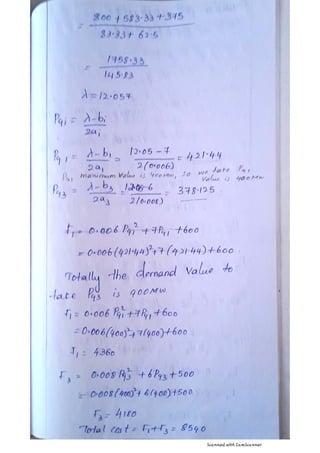 = 800 + 583.33 + 375
83.33 + 62.5
= 1758.33
145.83
λ = 12.057
Pgi = λ-bi
2ai
Pg1 = λ-b1 = 12.05 - 7 = 421.44
2a1 2(0.006)
Pg1 maximum value is 400MW, so we take Pg1 value is 400MW
Pg3 = λ-b3 = 12.05-6 = 378.125
2a3 2(0.008)
F1 = 0.006 Pg1² + 7Pg1 + 600
= 0.006(421.44)² + 7(421.44) + 600.
Totally the demand value to
take Pg3 is 400MW.
F1 = 0.006 Pg1² + 7Pg1 + 600
= 0.006(400)² + 7(400) + 600
F1 = 4360
F3 = 0.008 Pg3² + 6Pg3 + 500
= 0.008(400)² + 6(400) + 500
F3 = 4180
Total cost = F1 + F3 = 8540
Scanned with CamScanner